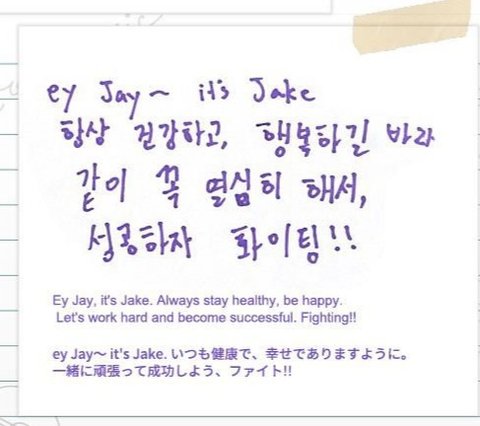 ey Jay~ it's Jake
항상 건강하고, 행복하길 바라
같이 꼭 열심히 해서,
성공하자 화이팅!!
Ey Jay, it's Jake. Always stay healthy, be happy.
Let's work hard and become successful. Fighting!!
ey Jay〜 it's Jake. いつも健康で、幸せでありますように。
一緒に頑張って成功しよう、ファイト!!